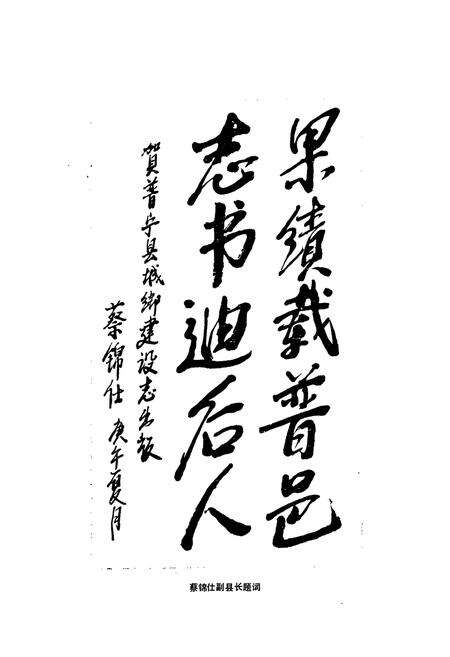 果績载普邑
志书迪后人
贺普宁县城鄉建设志出版
蔡锦仕 庚午夏月
蔡锦仕副县长题词